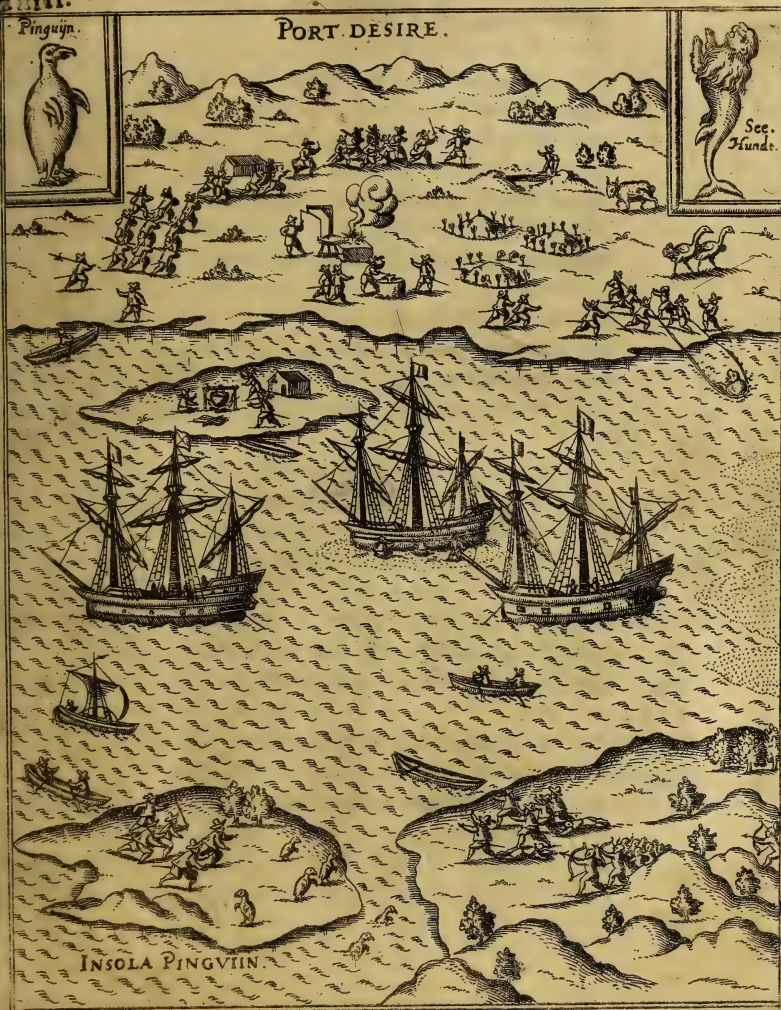 Pinguijn.
PORT DESIRE.
See.
Hundt.
INSOLA PINGVIIN.